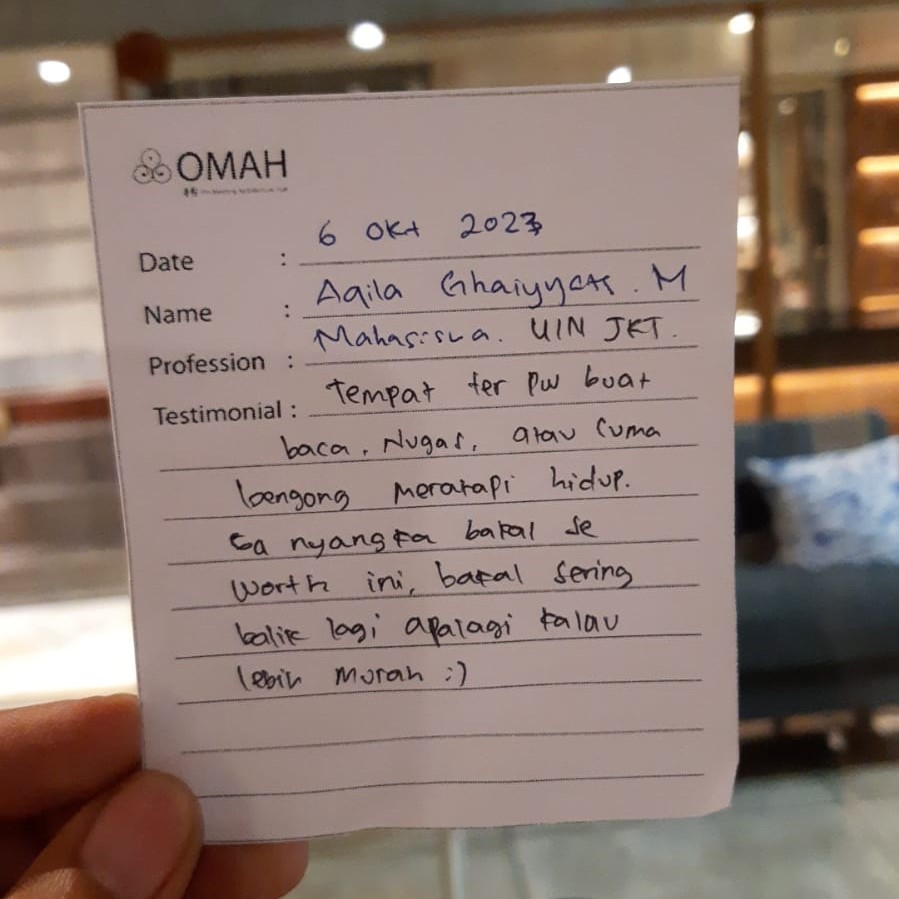 OMAH
Date : 6 Okt 2023
Name : Aqila Ghaiyyats. M
Profession : Mahasiswa. UIN JKT.
Testimonial : Tempat ter PW buat
baca, Nugas, atau Cuma
bengong meratapi hidup.
Ga nyangka bakal se
worth ini, bakal sering
balik lagi apalagi kalau
lebih murah :)